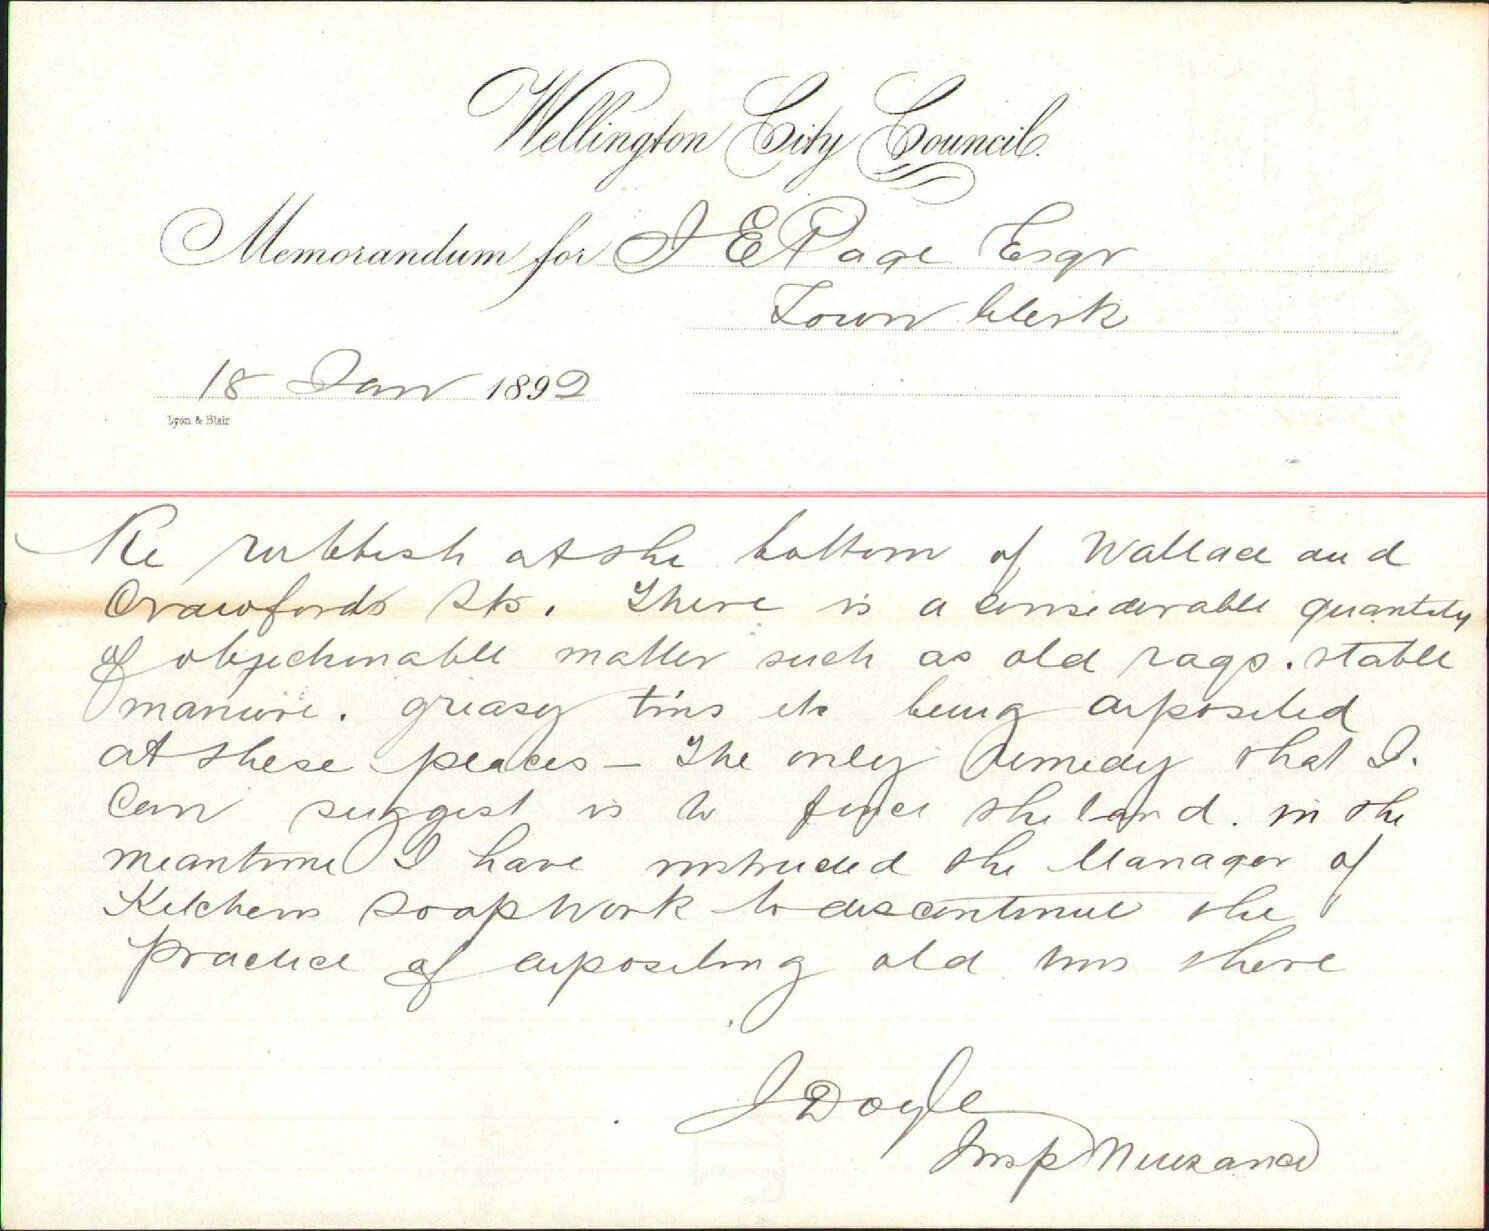 Wellington City Council.
Memorandum for J E Page Esqr
Town Clerk
18 Jan 1892
Lyon & Blair
Re rubbish at the bottom of Wallace and
Crawfords Sts. There is a considerable quantity
of objectionable matter such as old rags. stable
manure. greasy tins etc being deposited
at these places — The only remedy that I.
Can suggest is to fence the land. in the
meantime I have instructed the Manager of
Kitchens Soap Work to discontinue the
practice of depositing old tins there
J Doyle
Insp Nuisance